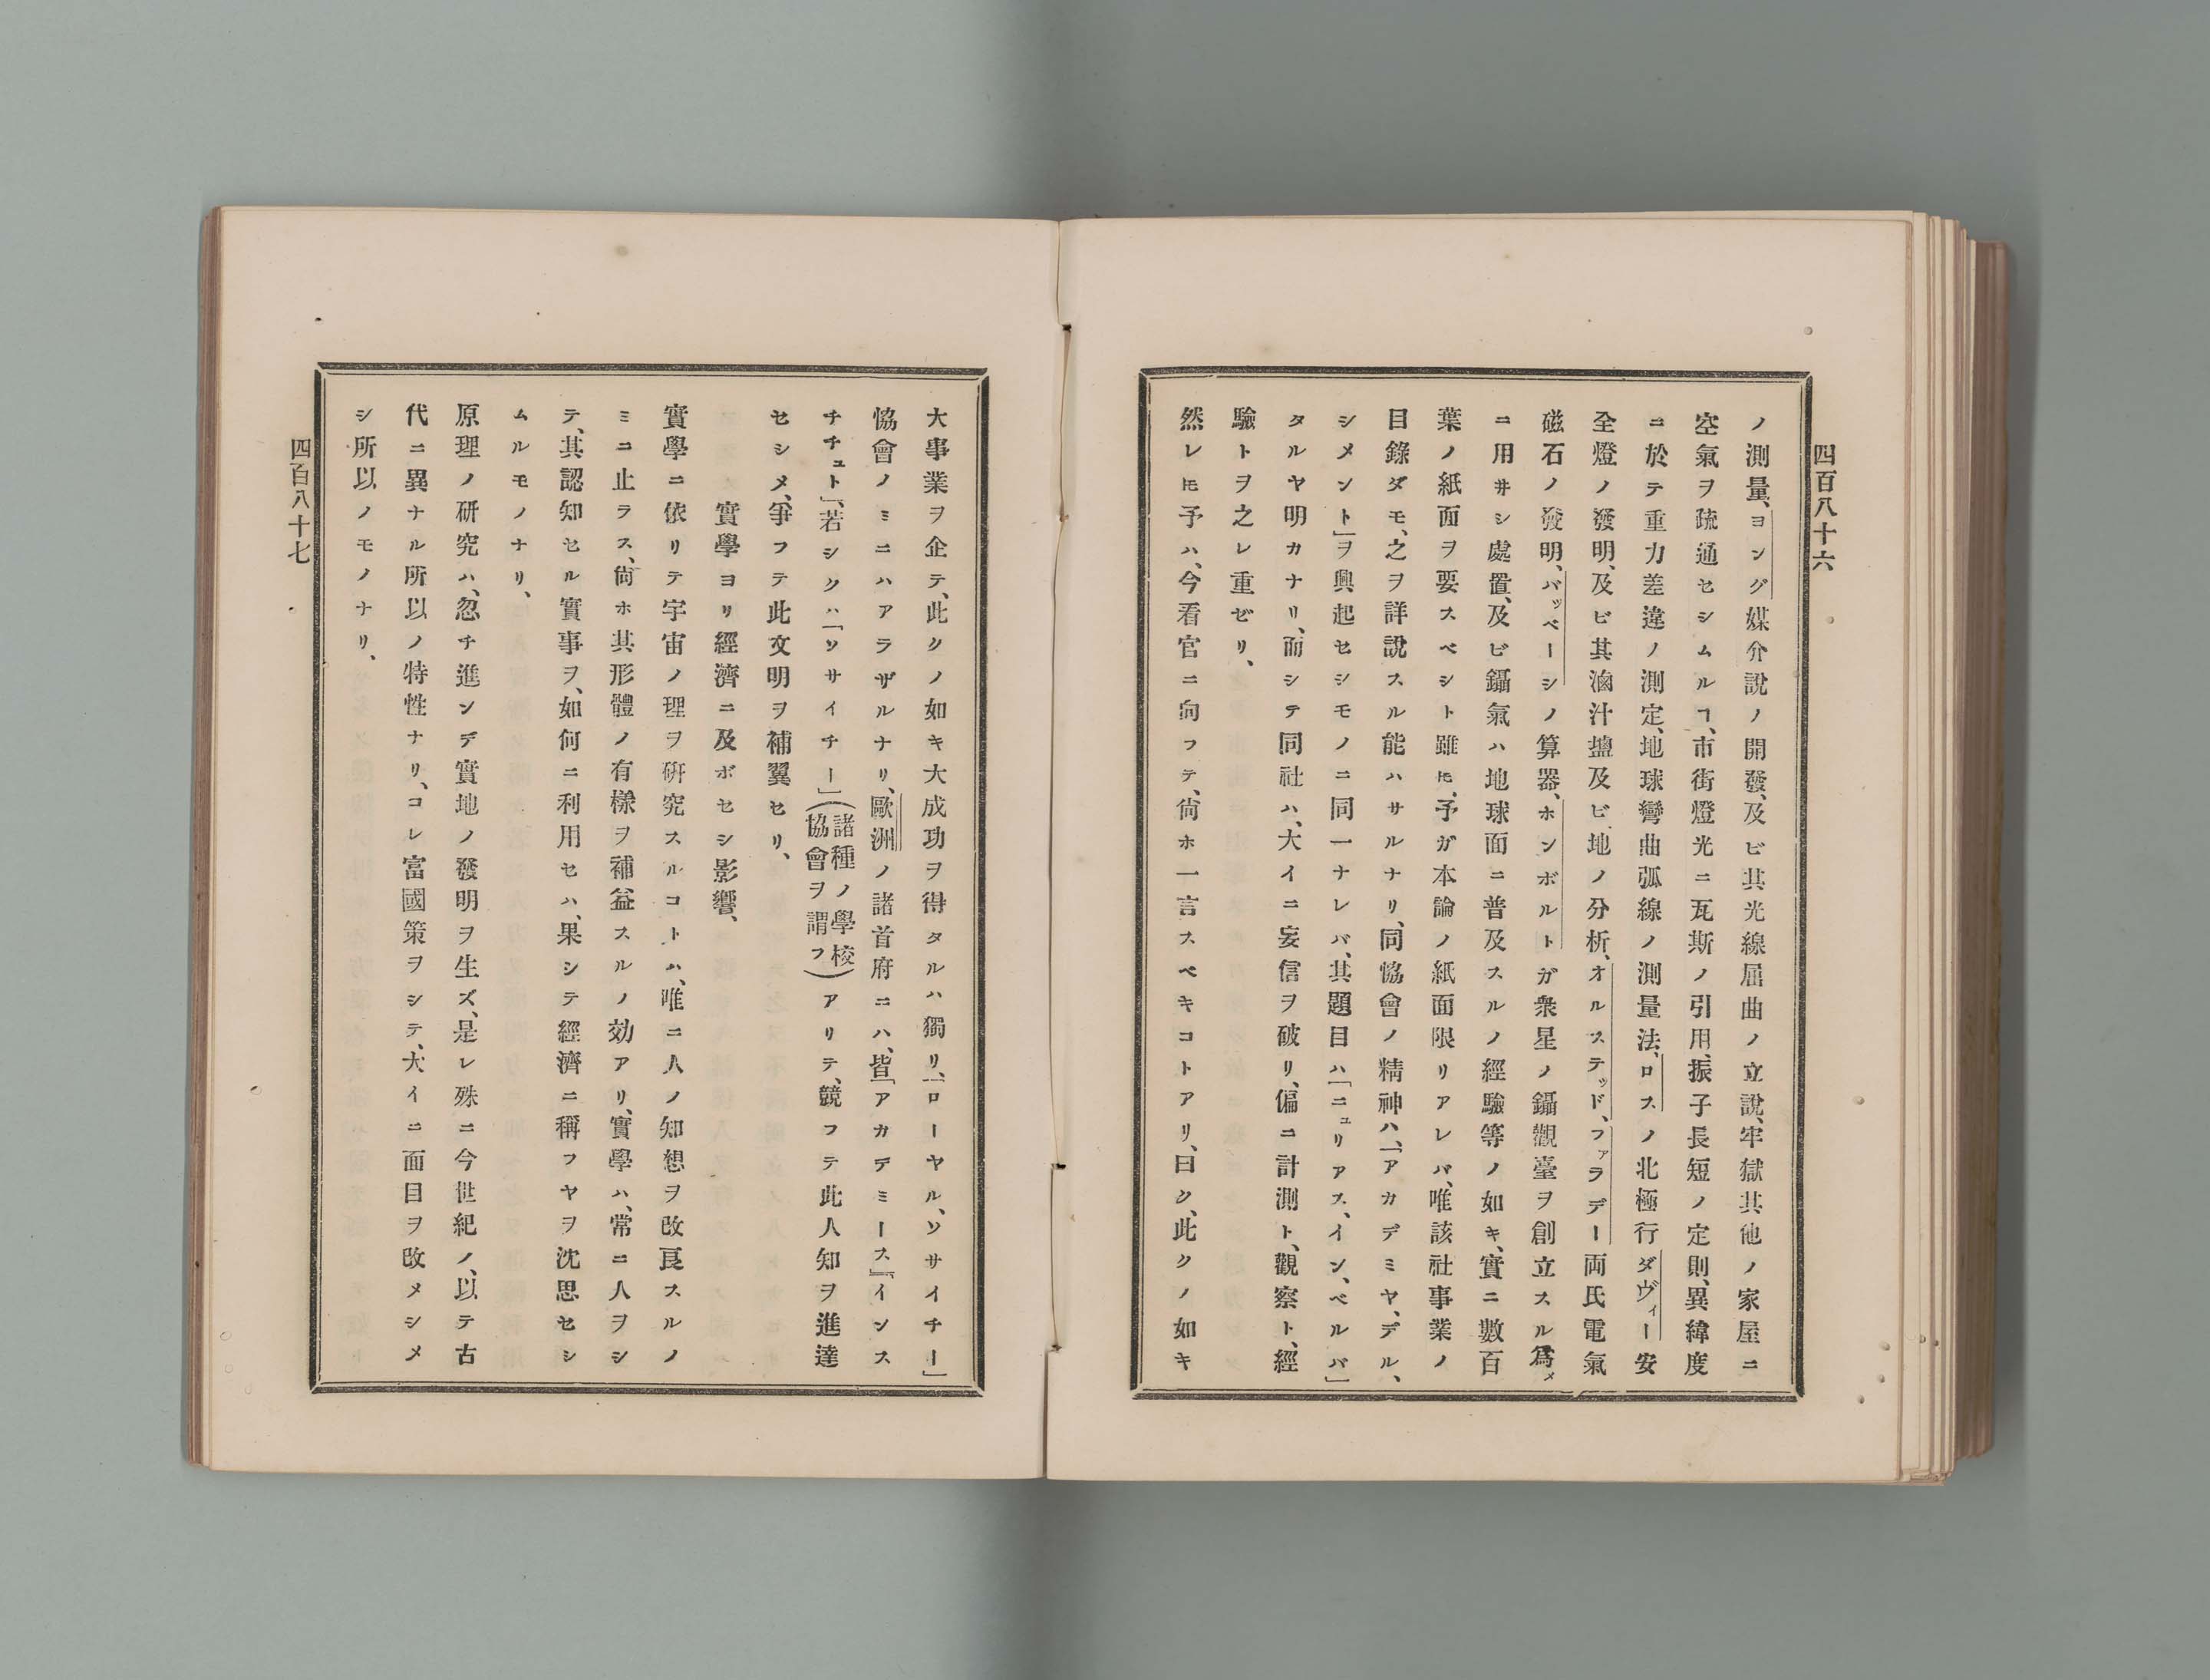 四百八十六
ノ測量、ヨング媒介說ノ開發、及ビ其光線屈曲ノ立說、牢獄其他ノ家屋ニ
空氣ヲ疏通セシムルヿ、市街燈光ニ瓦斯ノ引用、振子長短ノ定則、異緯度
ニ於テ重力差違ノ測定、地球彎曲弧線ノ測量法、ロスノ北極行ダヴィー安
全燈ノ發明、及ビ其滷汁塩及ビ地ノ分析、オルステッド、ファラデー両氏電氣
磁石ノ發明、バッベーシノ算器、ホンボルトガ衆星ノ鑷觀臺ヲ創立スル爲メ
ニ用井シ處置、及ビ鑷氣ハ地球面ニ普及スルノ經驗等ノ如キ、實ニ數百
葉ノ紙面ヲ要スベシト雖𪜈、予ガ本論ノ紙面限リアレバ、唯該社事業ノ
目錄ダモ、之ヲ詳說スル能ハサルナリ、同協會ノ精神ハ、「アカデミヤ、デル、
シメント」ヲ興起セシモノニ同一ナレバ、其題目ハ「ニュリアス、イン、ベルバ」
タルヤ明カナリ、而シテ同社ハ、大イニ妄信ヲ破リ、偏ニ計測ト、觀察ト、經
驗トヲ之レ重ゼリ、
然レ𪜈予ハ、今看官ニ向フテ、尙ホ一言スベキコトアリ、曰ク、此クノ如キ
大事業ヲ企テ、此クノ如キ大成功ヲ得タルハ獨リ、「ローヤル、ソサイチー」
協會ノミニハアラザルナリ、歐洲ノ諸首府ニハ、皆「アカデミース」「インス
チチュト」、若シクハ「ソサイチー」（諸種ノ學校協會ヲ謂フ）アリテ、競フテ此人知ヲ進達
セシメ、爭フテ此文明ヲ補翼セリ、
實學ヨリ經濟ニ及ボセシ影響、
實學ニ依リテ宇宙ノ理ヲ硏究スルコトハ、唯ニ人ノ知想ヲ改良スルノ
ミニ止ラス、尙ホ其形體ノ有樣ヲ補益スルノ効アリ、實學ハ、常ニ人ヲシ
テ、其認知セル實事ヲ、如何ニ利用セハ、果シテ經濟ニ稱フヤヲ沈思セシ
ムルモノナリ、
原理ノ硏究ハ、忽チ進ンデ實地ノ發明ヲ生ズ、是レ殊ニ今世紀ノ、以テ古
代ニ異ナル所以ノ特性ナリ、コレ富國策ヲシテ、大イニ面目ヲ改メシメ
シ所以ノモノナリ、
四百八十七